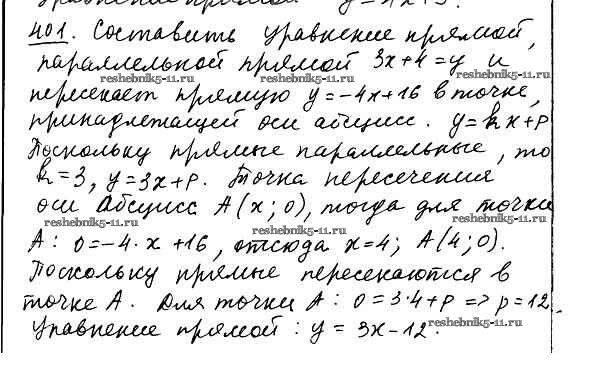 Уравнение прямой y = 4x + 3.
401. Составить уравнение прямой,
параллельной прямой 3x+4=y и
reshebnik5-11.ru reshebnik5-11.ru reshebnik5-11.ru
пересекает прямую y=-4x+16 в точке,
принадлежащей оси абсцисс. y=kx+p
Поскольку прямые параллельные, то
k=3, y=3x+p. Точка пересечения
оси абсцисс A(x; 0), тогда для точки
reshebnik5-11.ru reshebnik5-11.ru
A: 0=-4·x+16, отсюда x=4; A(4; 0).
reshebnik5-11.ru
Поскольку прямые пересекаются в
точке A. Для точки A: 0=3·4+p => p=12.
Уравнение прямой: y = 3x-12.
reshebnik5-11.ru